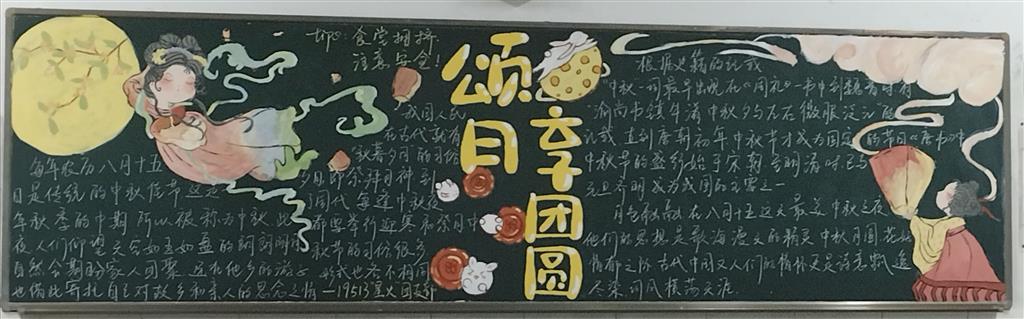 tips:食堂拥挤
注意安全!
颂月
享团圆
每年农历八月十五
日是传统的中秋佳节 这是
年秋季的中期 所以被称为中秋 此
夜 人们仰望天空如玉如盘的朗朗明月
自然会期盼家人团聚 远在他乡的游子
也借此寄托自己对故乡和亲人的思念之情
我国人民
在古代就有
秋暮夕月的习俗
夕月即祭拜月神 到
周代 每逢中秋夜
都要举行迎寒和祭月中
秋节的习俗很多
形式也各不相同
—19513星火团支部
根据史籍的记载
中秋一词最早出现在《周礼》一书中 到魏晋时有
谕尚书镇牛渚中秋夕与左右微服泛江的
记载 直到唐朝初年中秋节才成为固定的节日《唐书
中秋节的盛行始于宋朝 至明清时已与
元旦齐名 成为我国的主要
之一
在八月十五这天最美 中秋之夜
他们的思想是最浪漫
的精灵 中秋月圆 花好
情郁之际 古代中国文人们的情怀更是诗意飘逸